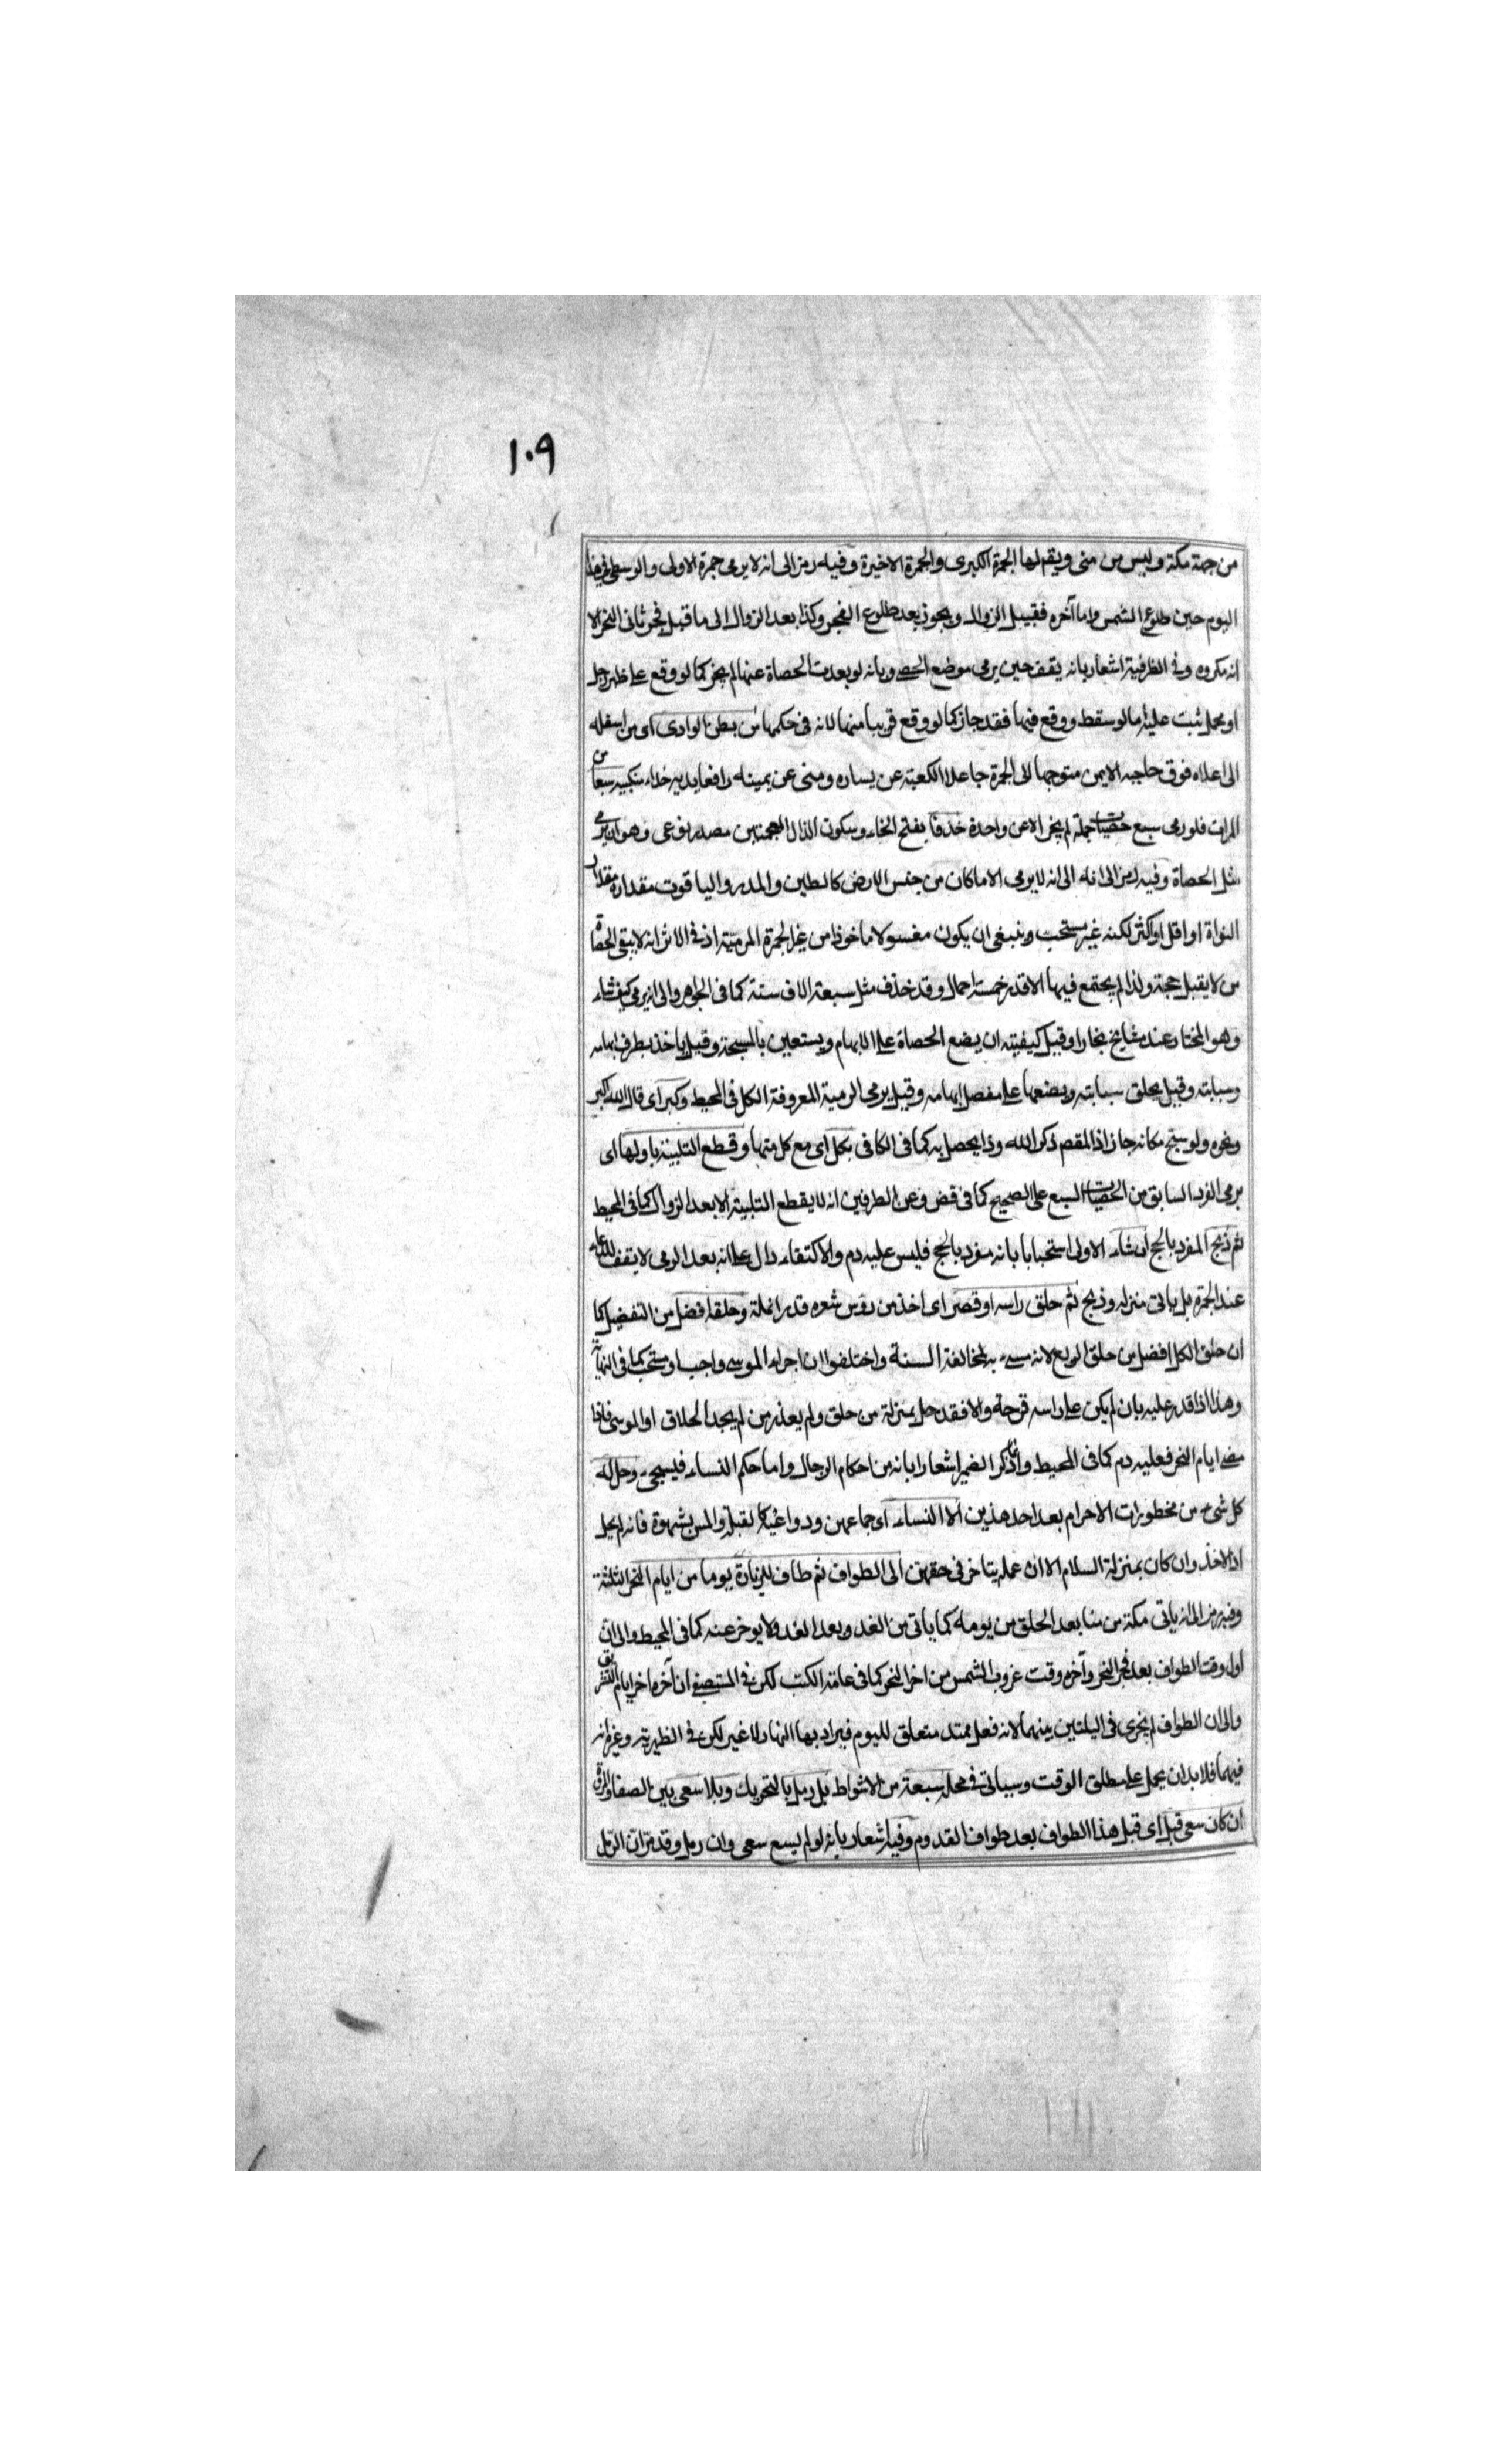 ١٠٩
من جهة مكة وليس من منى ويقم لها الجمرة الكبرى والجمرة الاخيرة وفيه رمز الى انه لا يرمى جمرة الاولى والوسطى في هذا
اليوم حين طلوع الشمس واما آخره فقبيل الزوال ويجوز بعد طلوع الفجر وكذا بعد الزوال الى ما قبل فجر ثانى النحر الا
انه مكروه وفي الظرفية اشعار بانه يقف حين يرمى موضع الحصى وبانه لو بعدت الحصاة عنها لم يجز كما لو وقع على ظهر رجل
او محمل ثبت عليه اما لو سقط ووقع فيها فقد جاز كما لو وقع قريبا منها لانه فى حكمها من بطن الوادى اى من اسفله
الى اعلاه فوق حاجبه الايمن متوجها الى الجمرة جاعلا الكعبة عن يساره ومنى عن يمينه رافعا يديه حذاء منكبيه سبعا من
المرات فلو رمى سبع حصيات جملة لم يجز الا عن واحدة خذفا بفتح الخاء وسكون الذال المعجمتين مصدر نوعى وهو ان يرمى
مثل الحصاة وفيه رمز الى انه الى انه لا يرمى الا ما كان من جنس الارض كالطين والمدر والياقوت مقداره مقدار
النواة او اقل او اكثر لكنه غير مستحب وينبغى ان يكون مغسولا ماخوذا من غير الجمرة المرمية اذ في الاثر انه لا يبقى الحصاة
من لا يقبل حجة ولذا لم يجتمع فيها الا قدر خمسة احمال وقد خذف مثل سبعة الاف سنة كما فى الجواهر والى انه يرمى كيف شاء
وهو المختار عند مشايخ بخارا وقيل كيفيته ان يضع الحصاة على الابهام ويستعين بالمسبحة وقيل ياخذ بطرف ابهامه
وسبابته وقيل يحلق سبابته ويضعها على مفصل ابهامه وقيل يرمى الرمية المعروفة الكل فى المحيط وكبر اى قال الله اكبر
ونحوه ولو سبح مكانه جاز اذ المقصم ذكر الله وذا يحصل به كما فى الكافى بكل اى مع كل منها وقطع التلبية باولها اى
برمى الفرد السابق من الحصيات السبع على الصحيح كما فى قض وعن الطرفين انه لا يقطع التلبية الا بعد الزوال كما فى المحيط
ثم ذبح المفرد بالحج ان شاء الاولى استحبابا بانه مفرد بالحج فليس عليه دم والاكتفاء دال على انه بعد الرمى لا يقف للدعاء
عند الجمرة بل ياتى منزله وذبح ثم حلق راسه او قصر اى اخذ من روس شعره قدر انملة وحلقه افضل من التقصير كما
ان حلق الكل افضل من حلق الربع لانه مسيء به لمخالفة السنة واختلفوا ان اجراء الموسى واجب او مستحب كما فى النهاية
وهذا اذا قدر عليه بان لم يكن على راسه قرحة والا فقد حل بمنزلة من حلق ولم يعذر من لم يجد الحلاق او الموسى فاذا
مضى ايام النحر فعليه دم كما فى المحيط وانما ذكر الضمير اشعارا بانه من احكام الرجال واما حكم النساء فسيجىء وحل له
كل شىء من محظورات الاحرام بعد احد هذين الا النساء اى جماعهن ودواعيه كالقبلة والمس بشهوة فانه لم يحل
اذ الاخذ وان كان بمنزلة السلام الا ان عمله يتاخر فى حقهن الى الطواف ثم طاف للزيارة يوما من ايام النحر الثلثة
وفيه رمز الى انه ياتى مكة من منا بعد الحلق من يومه كما ياتى من الغد وبعد الغد ولا يوخر عنه كما فى المحيط والى ان
اول وقت الطواف بعد فجر النحر وآخره وقت غروب الشمس من اخر النحر كما فى عامة الكتب لكن فى المستصفى ان آخره اخر ايام التشريق
والى ان الطواف لم يجزى فى اليلتين بينهما لانه فعل ممتد متعلق لليوم فيراد بها النهار لا غير لكن فى الظهيرية وغيره انه
فيهما فلا بد ان يحمل على مطلق الوقت وسياتى فى محله سبعة من الاشواط بل رمل بالتحريك وبلا سعى بين الصفا والمروة
ان كان سعى قبل اى قبل هذا الطواف بعد طواف القدوم وفيه اشعار بانه لو لم يسع سعى وان رمل وقد مر ان الرمل